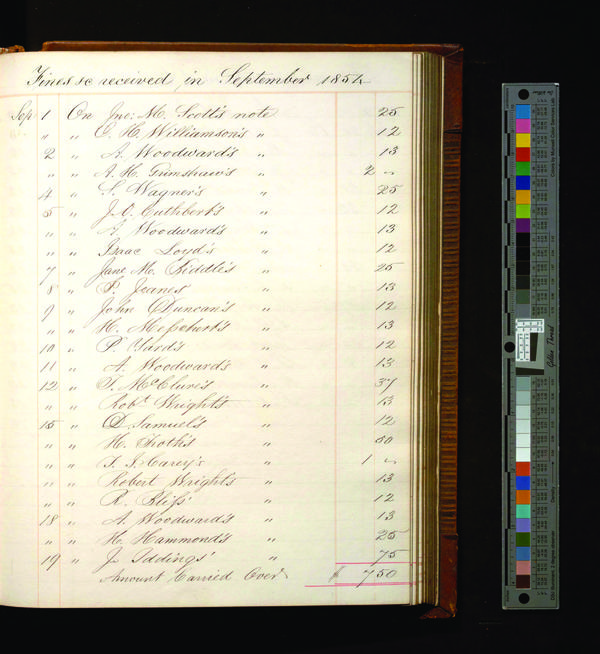 Fines &c received in September 1854
Sep 1 On Jno: M. Scott's note 25
" " C. H. Williamson's " 12
2 " A. Woodward's " 13
" " A. H. Grimshaw's " 2 "
4 " S. Wagner's " 25
5 " J. O. Cuthbert's " 12
" " A. Woodward's " 13
" " Isaac Loyd's " 12
7 " Jane M. Riddle's " 25
8 " P. Jeanes' " 13
9 " John Duncan's " 12
" " H. " 13
10 " P. Yard's " 12
11 " A. Woodward's " 13
12 " S. McClure's " 37
" " Robt. Wright's " 13
15 " D. Samuel's " 12
" " H. " 50
" " Carey's " 1 "
" " Robert Wright's " 13
" " R. Bliss' " 12
18 " A. Woodward's " 13
" " H. Hammond's " 25
19 " J. Iddings' " 75
Amount Carried Over $ 7 50